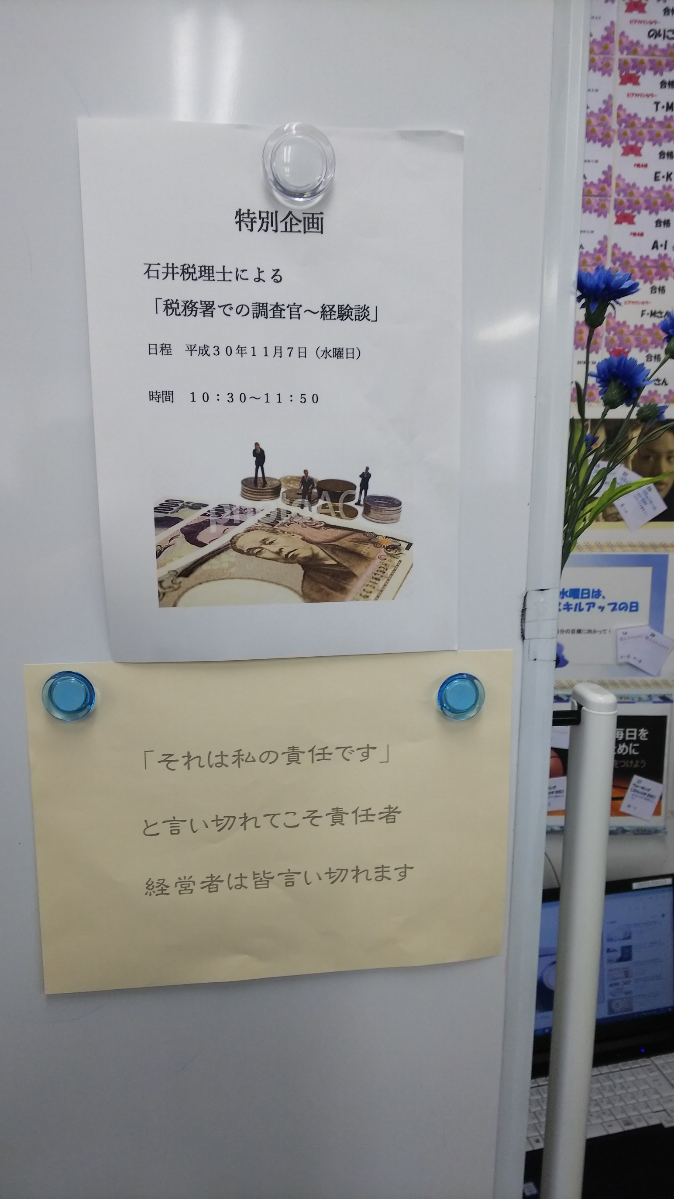 特別企画
石井税理士による
「税務署での調査官～経験談」
日程　平成３０年１１月７日（水曜日）
時間　１０：３０～１１：５０
「それは私の責任です」
と言い切れてこそ責任者
経営者は皆言い切れます
合格
のりこ
合格
T・M
合格
E・K
合格
A・I
合格
F・Mさん
合格
さん
水曜日は、
スキルアップの日
毎日を
ために
をつけよう